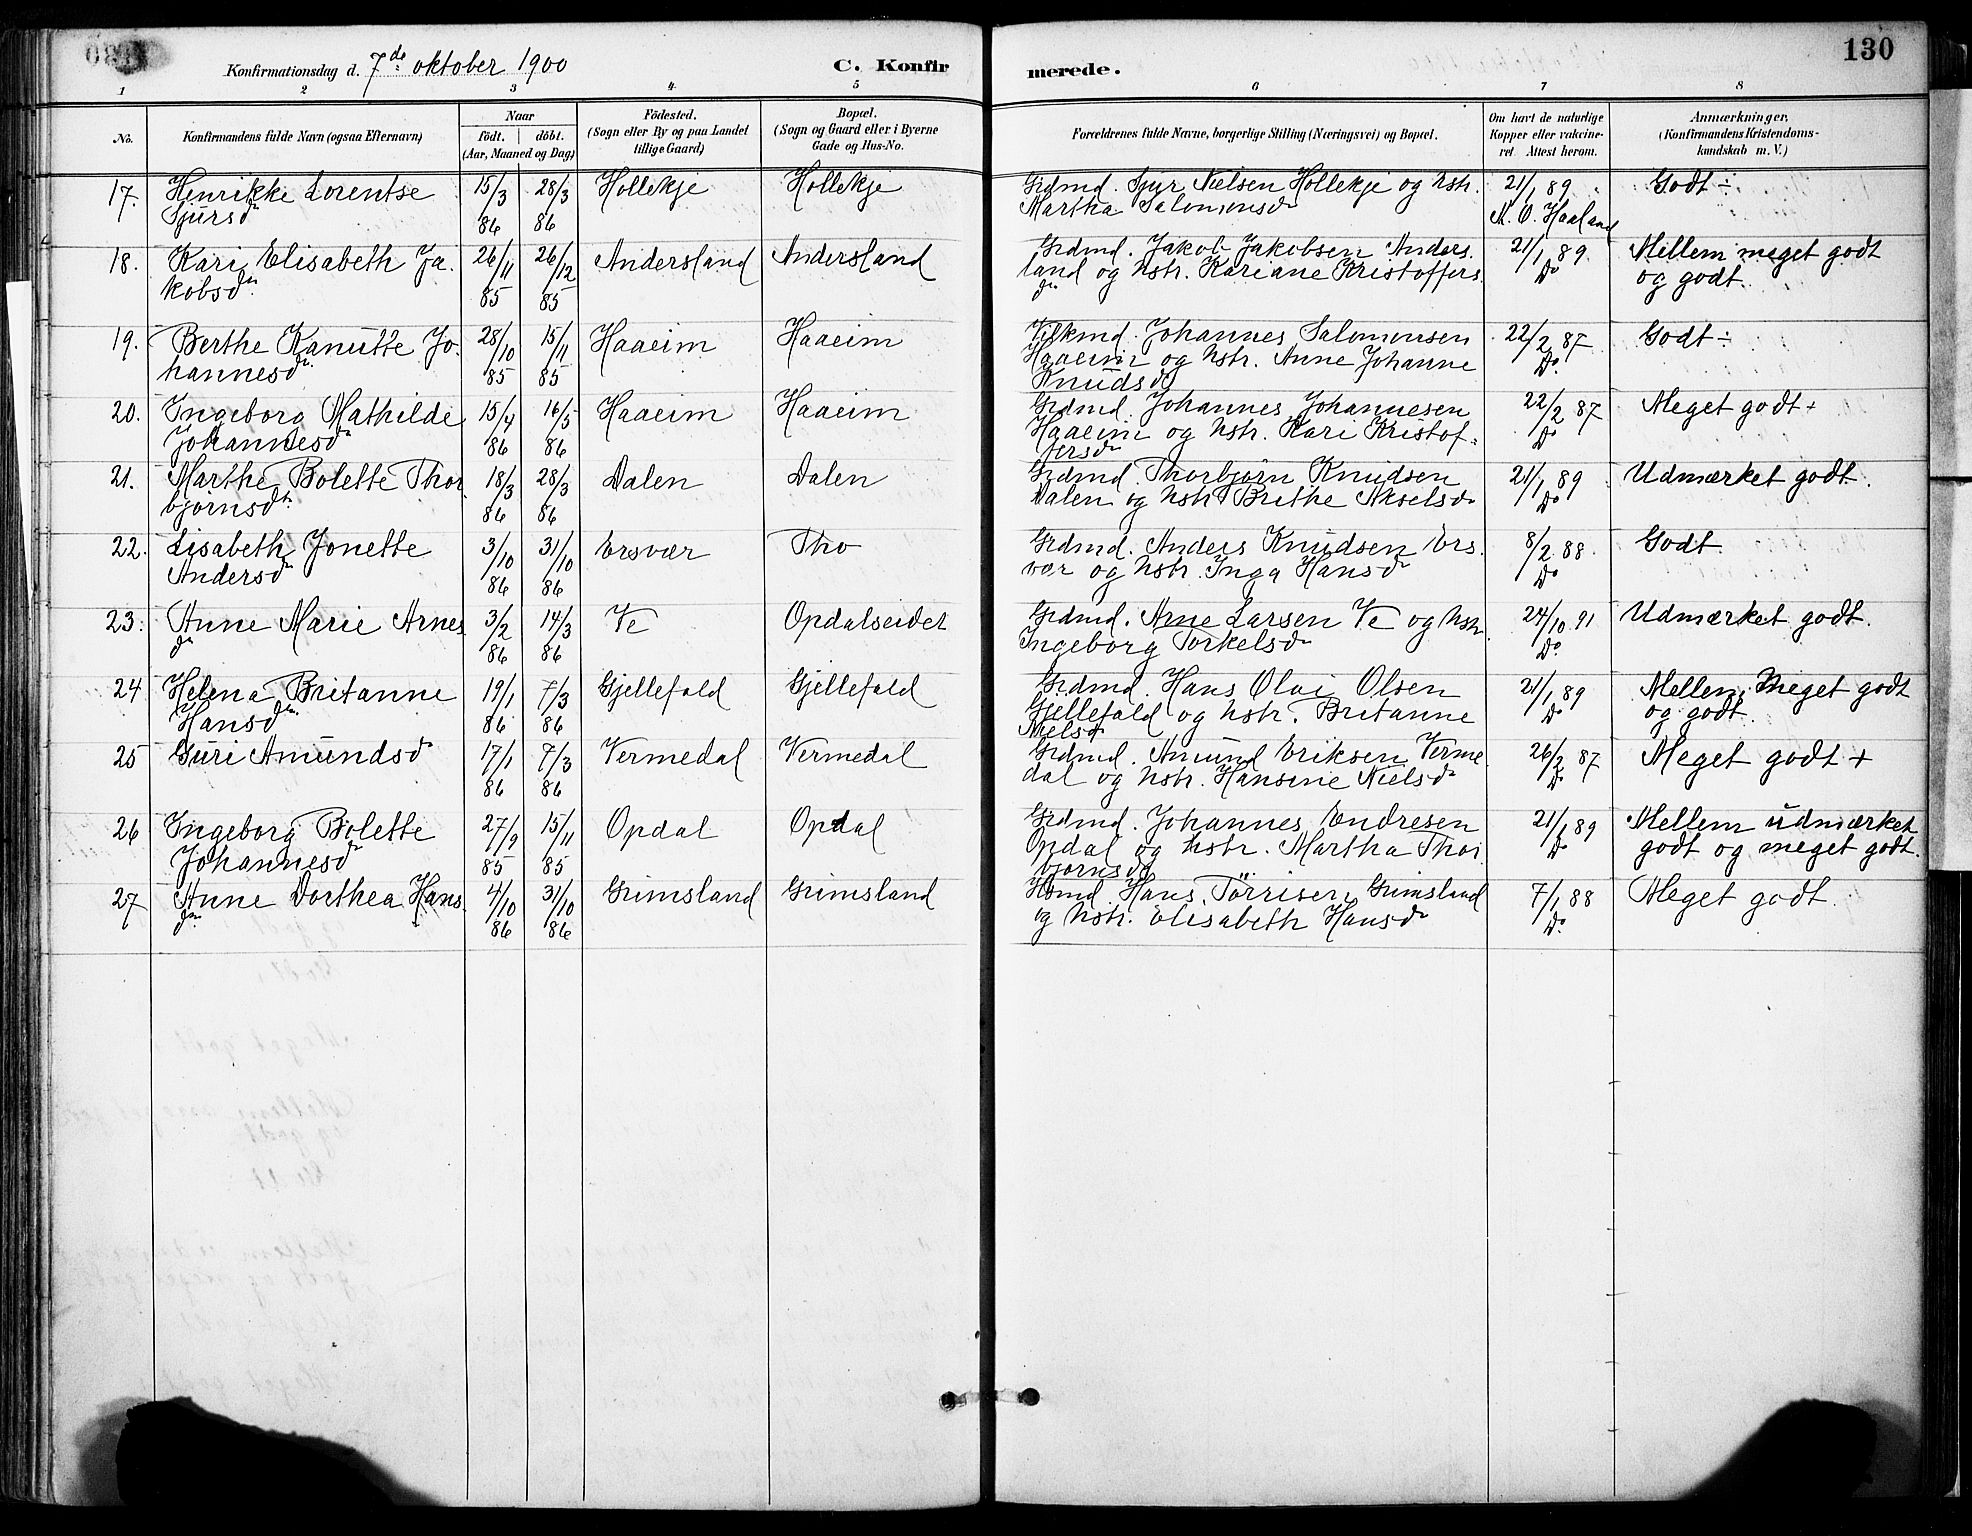 Konfirmationsdag d. 7de oktober 1900
C. Konfir
merede.
130
1 2 3 4 5 6 7 8
No.
Konfirmandens fulde Navn (ogsaa Efternavn)
Naar
födt. döbt.
(Aar, Maaned og Dag)
Födested.
(Sogn eller By og paa Landet
tillige Gaard)
Bopæl.
(Sogn og Gaard eller i Byerne
Gade og Hus-No.
Forældrenes fulde Navne, borgerlige Stilling (Næringsvei) og Bopæl.
Om havt de naturlige
Kopper eller vakcine-
ret. Attest herom.
Anmærkninger,
(Konfirmandens Kristendoms-
kundskab m. V.)
17. Henrikke Lorentse 15/3 28/3 Hollekje Hollekje Grdmd. Sjur Nielsen Hollekje og hstr. 21/1 89 Godt ÷
Sjursdr 86 86 Martha Salomonsdr M. O. Haaland
18. Kari Elisabeth Ja- 26/11 26/12 Andersland Andersland Grdmd. Jakob Jakobsen Anders- 21/1 89. Mellem meget godt
kobsdr. 85 85 land og hstr. Kariane Kristoffers- Do og godt.
dr
19. Berthe Kanutte Jo- 28/10 15/11 Haaeim Haaeim Johannes Salomonsen 22/2 87 Godt ÷
hannesdr. 85 85 Haaeim og hstr. Anne Johanne Do.
Knudsdr
20. Ingeborg Mathilde 15/4 16/5 Haaeim Haaeim Grdmd. Johannes Johannesen 22/2 87 Meget godt +
Johannesdr 86 86 Haaeim og hstr. Kari Kristof- Do
fersdr
21. Marthe Bolette Thor- 18/3 28/3 Dalen Dalen Grdmd. Thorbjørn Knudsen 21/1 89 Udmærket godt.
bjørnsdr. 86 86 Dalen og hstr Brithe Akselsdr Do
22. Lisabeth Jonette 3/10 31/10 Ersvær Tho Grdmd. Anders Knudsen Ers- 8/2 88. Godt.
Andersdr 86 86 vær og hstr. Inga Hansdr Do
23. Anne Marie Arnes- 3/2 14/3 Ve Opdalseidet Grdmd. Arne Larsen Ve og hstr. 24/10 91 Udmærket godt.
dr 86 86 Ingeborg Torkelsdr Do
24 Helena Britanne 19/1 7/3 Gjellefald Gjellefald Grdmd. Hans Olai Olsen 21/1 89 Mellem meget godt
Hansdr 86 86 Gjellefald og hstr. Britanne Do og godt.
Nielsdr
25 Guri Amundsdr 17/1 7/3 Vermedal Vermedal Grdmd. Amund Eriksen Verme- 26/2 87 Meget godt +
86 86 dal og hstr. Hansine Nielsdr Do
26 Ingeborg Bolette 27/9 15/11 Opdal Opdal Grdmd. Johannes Endresen 21/1 89 Mellem udmærket
Johannesdr 85 85 Opdal og hstr. Martha Thor- Do godt og meget godt.
bjørnsdr
27 Anne Dorthea Hans- 4/10 31/10 Grimsland Grimsland Hsmd. Hans Tørrisen Grimsland 7/1 88 Meget godt.
dr 86 86 og hstr. Elisabeth Hansdr Do.